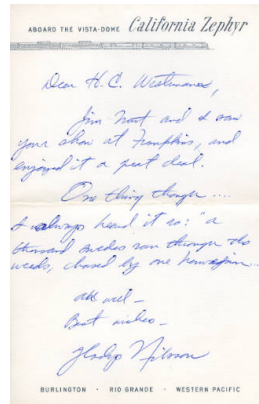 ABOARD THE VISTA-DOME California Zephyr
Dear H. C. Westermann,
Jim Nutt and I saw
your show at Frumkins, and
enjoyed it a great deal.
One thing though....
I always heard it as: "a
thousand swedes ran through the
weeds, chased by one
all well –
Best wishes –
Gladys Nilsson
BURLINGTON · RIO GRANDE · WESTERN PACIFIC